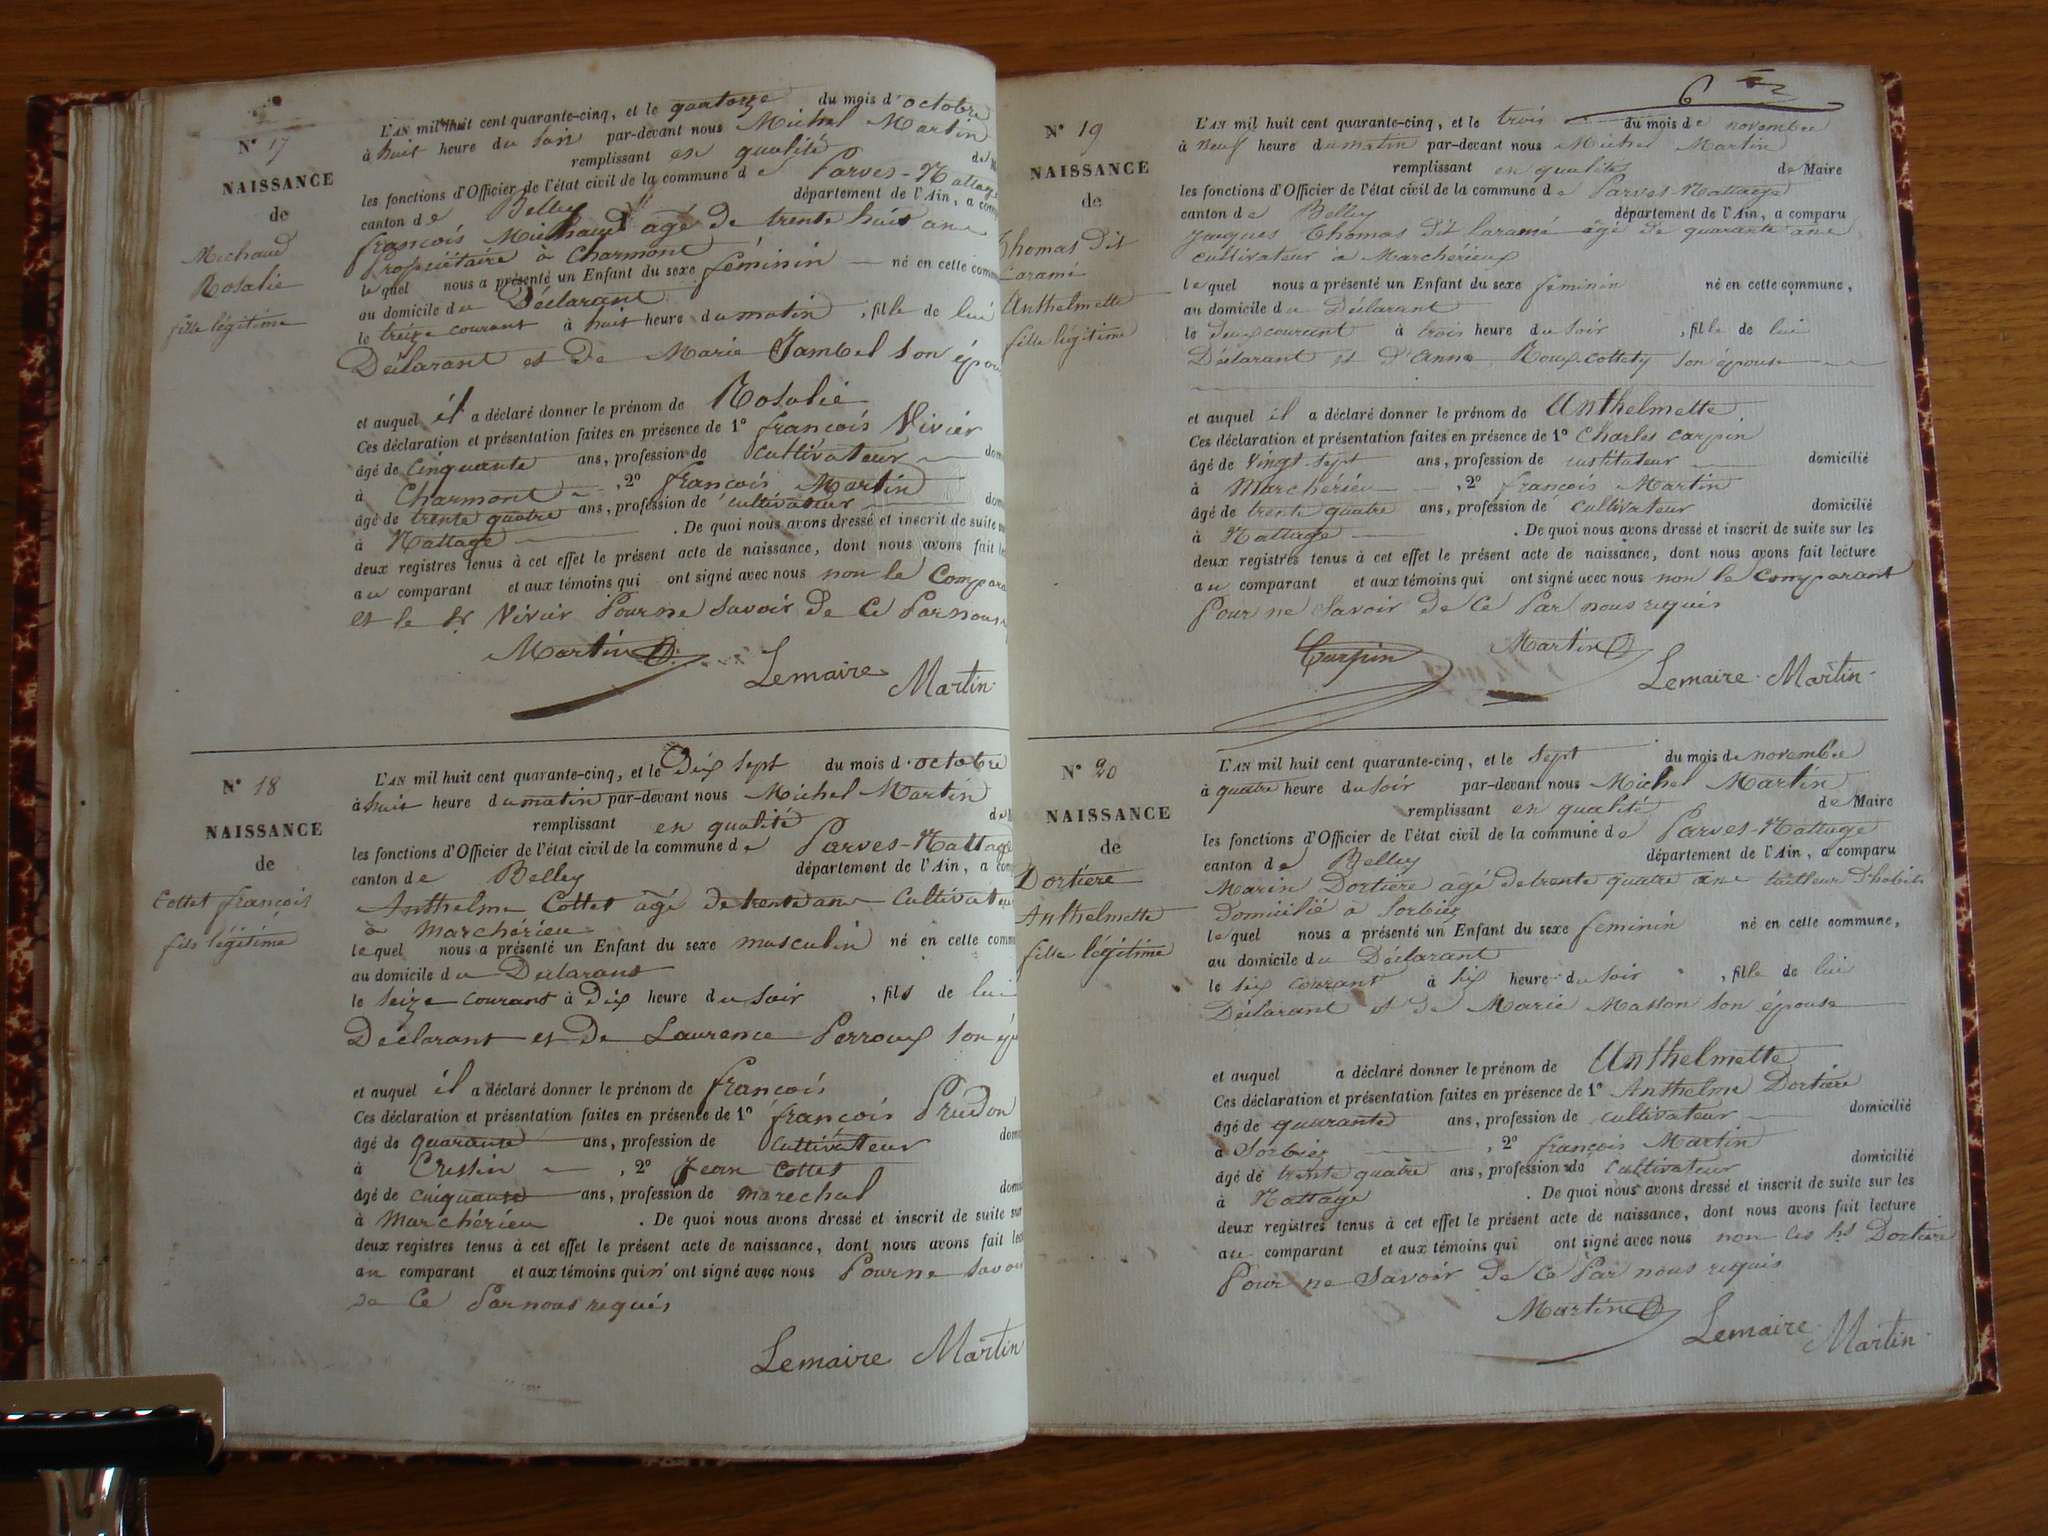 N° 17
NAISSANCE
de
Michaud
Rosalie
fille légitime
L'AN mil huit cent quarante-cinq, et le quatorze du mois d'octobre
à huit heure du soir par-devant nous Michel Martin
remplissant en qualité de
les fonctions d'Officier de l'état civil de la commune de Parves-Nattage
canton de Belley département de l'Ain, a comp
françois Michaud agé de trente huit ans
Propriétaire à Charmont
lequel nous a présenté un Enfant du sexe féminin né en cette comm
au domicile du Déclarant
le treize courant à huit heure du matin, fille de lui
Déclarant et de Marie Jambel son épou
et auquel il a déclaré donner le prénom de Rosalie
Ces déclaration et présentation faites en présence de 1° françois Vivier
âgé de cinquante ans, profession de cultivateur dom
à Charmont, 2° françois Martin
âgé de trente quatre ans, profession de cultivateur dom
à Nattage. De quoi nous avons dressé et inscrit de suite su
deux registres tenus à cet effet le présent acte de naissance, dont nous avons fait le
au comparant et aux témoins qui ont signé avec nous non le Compara
et le sr Vivier Pour ne Savoir de Ce Par nous
Martin
Lemaire Martin
N° 18
NAISSANCE
de
Cottet françois
fils légitime
L'AN mil huit cent quarante-cinq, et le Dix sept du mois d'octobre
à huit heure du matin par-devant nous Michel Martin
remplissant en qualité de
les fonctions d'Officier de l'état civil de la commune de Parves-Nattage
canton de Belley département de l'Ain, a com
Anthelme Cottet âgé de trente ans Cultivateu
à Marchérieu
lequel nous a présenté un Enfant du sexe masculin né en cette comm
au domicile du Déclarant
le seize courant à Dix heure du soir, fils de lui
Déclarant et De Laurence Perroux son ép
et auquel il a déclaré donner le prénom de françois
Ces déclaration et présentation faites en présence de 1° françois Prudon
âgé de quarante ans, profession de Cultivateur dom
à Cressin, 2° Jean Cottet
âgé de cinquante ans, profession de marechal dom
à Marchérieu. De quoi nous avons dressé et inscrit de suite sur
deux registres tenus à cet effet le présent acte de naissance, dont nous avons fait lec
au comparant et aux témoins qui n'ont signé avec nous Pour ne Savoir
de Ce Par nous requis
Lemaire Martin
6
N° 19
NAISSANCE
de
Thomas Dit
Laramé
Anthelmette
fille légitime
L'AN mil huit cent quarante-cinq, et le trois du mois de novembre
à neuf heure du matin par-devant nous Michel Martin
remplissant en qualité de Maire
les fonctions d'Officier de l'état civil de la commune de Parves-Nattage
canton de Belley département de l'Ain, a comparu
Jacques Thomas dit laramé âgé de quarante ans
cultivateur à Marchérieux
lequel nous a présenté un Enfant du sexe féminin né en cette commune,
au domicile du Déclarant
le deux courant à trois heure du soir, fille de lui
Déclarant et d'Anne Roux-cottety son épouse
et auquel il a déclaré donner le prénom de Anthelmette
Ces déclaration et présentation faites en présence de 1° Charles Carpin
âgé de Vingt sept ans, profession de instituteur domicilié
à Marchérieu, 2° françois Martin
âgé de trente quatre ans, profession de cultivateur domicilié
à Nattage. De quoi nous avons dressé et inscrit de suite sur les
deux registres tenus à cet effet le présent acte de naissance, dont nous avons fait lecture
au comparant et aux témoins qui ont signé avec nous non le comparant
Pour ne Savoir de Ce Par nous requis
Carpin Martin
Lemaire Martin
N° 20
NAISSANCE
de
Dortiere
Anthelmette
fille légitime
L'AN mil huit cent quarante-cinq, et le sept du mois de novembre
à quatre heure du soir par-devant nous Michel Martin
remplissant en qualité de Maire
les fonctions d'Officier de l'état civil de la commune de Parves-Nattage
canton de Belley département de l'Ain, a comparu
Marin Dortiere âgé de trente quatre ans tailleur d'habits
Domicilié à Sorbiez
lequel nous a présenté un Enfant du sexe féminin né en cette commune,
au domicile du Déclarant
le six courant à six heure du soir, fille de lui
Déclarant et de Marie Masson son épouse
et auquel a déclaré donner le prénom de Anthelmette
Ces déclaration et présentation faites en présence de 1° Anthelme Dortiere
âgé de quarante ans, profession de cultivateur domicilié
à Sorbiez, 2° françois Martin
âgé de trente quatre ans, profession de Cultivateur domicilié
à Nattage. De quoi nous avons dressé et inscrit de suite sur les
deux registres tenus à cet effet le présent acte de naissance, dont nous avons fait lecture
au comparant et aux témoins qui ont signé avec nous non les Dortiere
Pour ne Savoir de Ce Par nous requis
Martin
Lemaire Martin